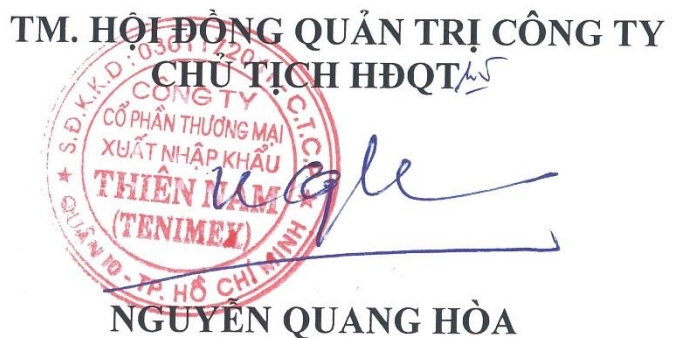 TM. HỘI ĐỒNG QUẢN TRỊ CÔNG TY
CHỦ TỊCH HĐQT
CÔNG TY
CỔ PHẦN THƯƠNG MẠI
XUẤT NHẬP KHẨU
THIÊN NAM
(TENIMEX)
QUẬN 10 - TP. HỒ CHÍ MINH
NGUYỄN QUANG HÒA